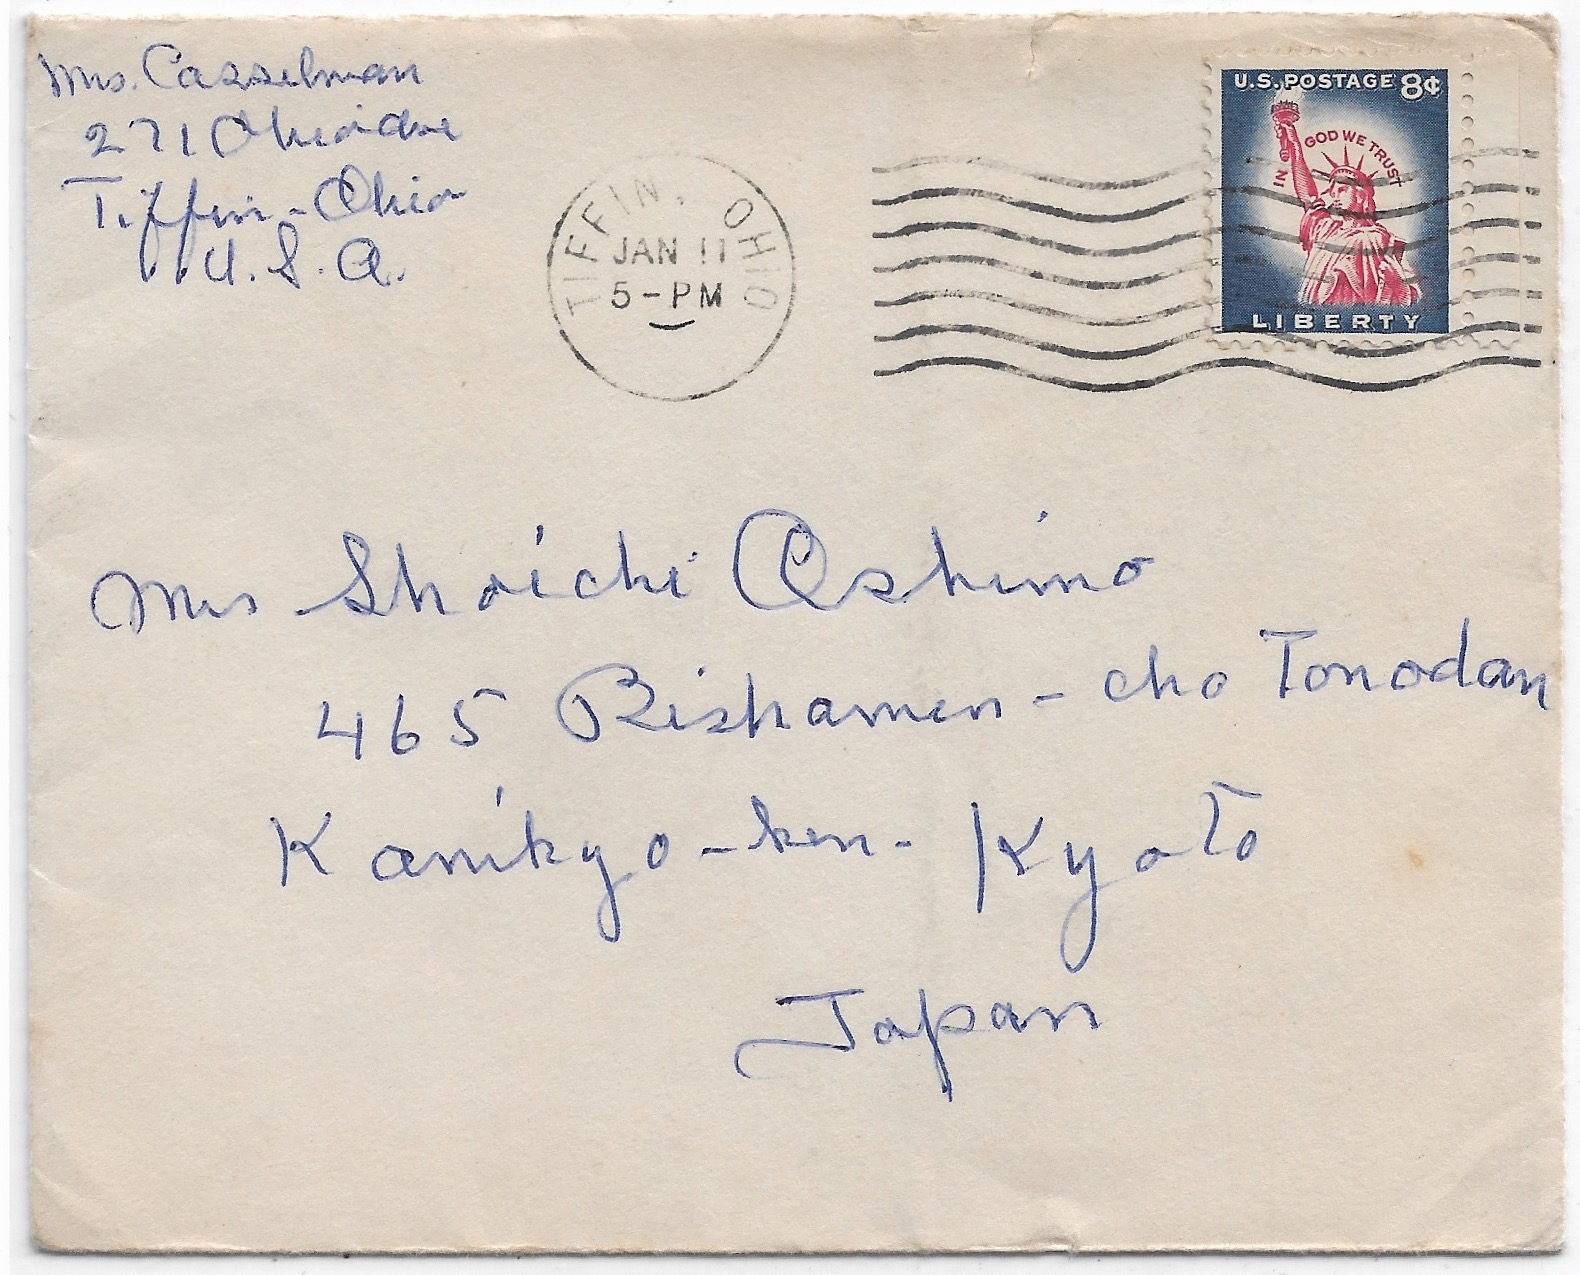 Mrs. Casselman
271 Ohio Ave
Tiffin - Ohio
U. S. A.
TIFFIN, OHIO
JAN 11
5 - PM
U.S. POSTAGE 8¢
IN GOD WE TRUST
LIBERTY
Mrs Shoichi Oshimo
465 Bishamen - cho Tonodan
Kamikyo - ken - Kyoto
Japan